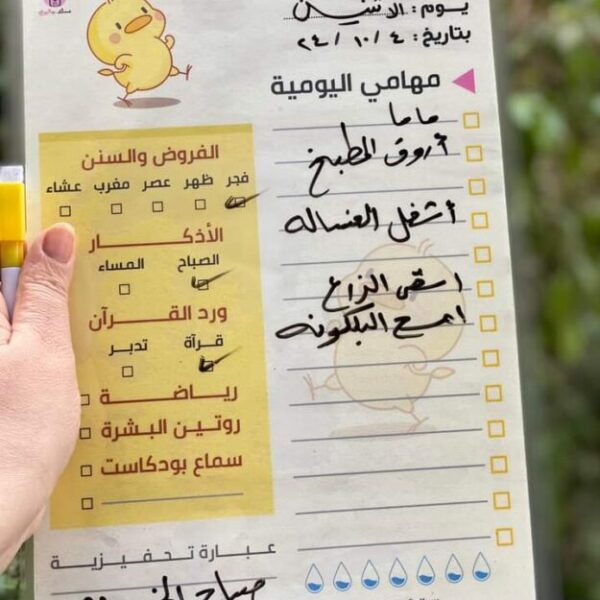 يوم: الاثنين
بتاريخ: ٢٤/١٠/٤
مهامي اليومية
ماما
أروق المطبخ
أشغل الغساله
اسقي الزرع
امسح البلكونه
الفروض والسنن
فجر ظهر عصر مغرب عشاء
الأذكار
الصباح المساء
ورد القرآن
قرآة تدبر
رياضة
روتين البشرة
سماع بودكاست
عبارة تحفيزية
صباح